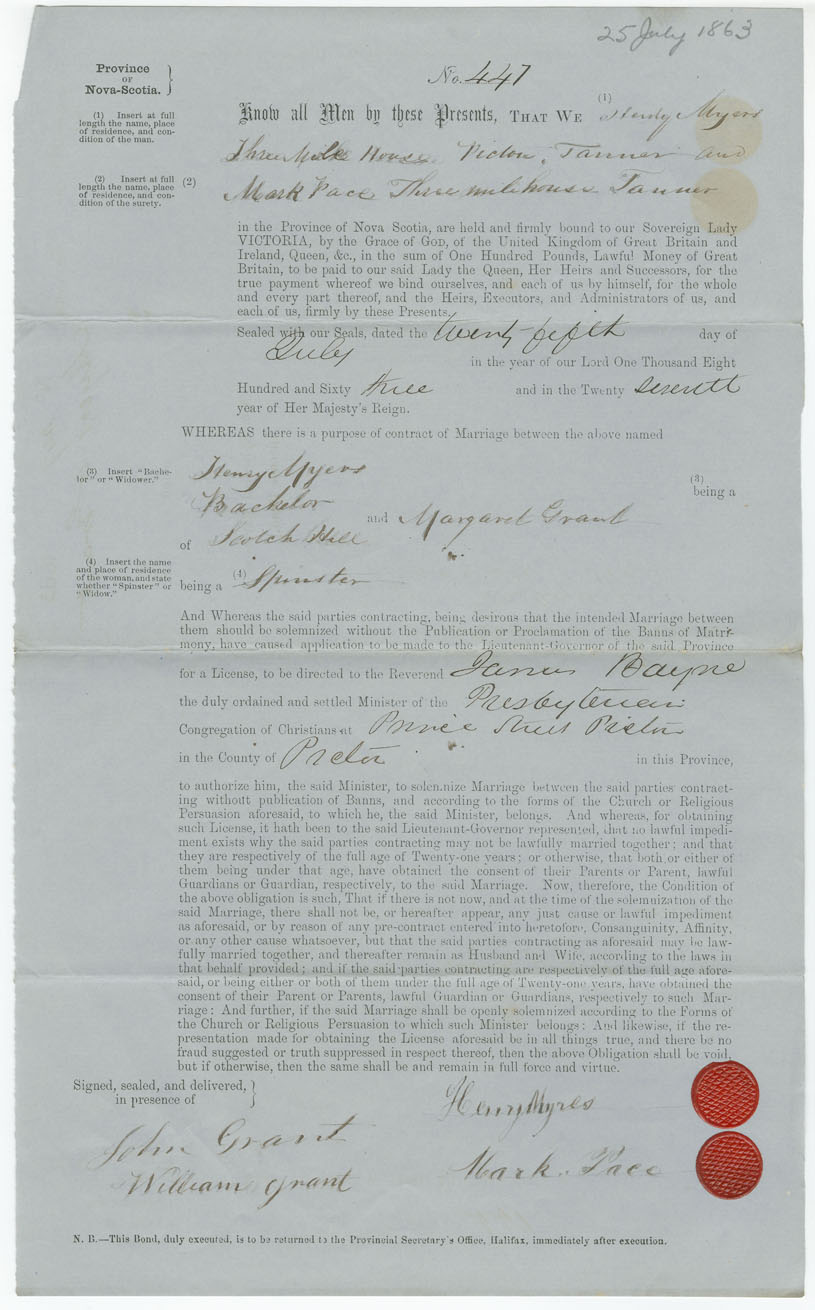 25 July 1863
Province
OF
Nova-Scotia.
No. 447
(1) Insert at full
length the name, place
of residence, and con-
dition of the man.
Know all Men by these Presents, THAT WE (1) Henry Myers
Three Mile House Pictou, Tanner and
(2) Insert at full
length the name, place
of residence, and con-
dition of the surety.
(2) Mark Pace Three mile house Tanner
in the Province of Nova Scotia, are held and firmly bound to our Sovereign Lady
VICTORIA, by the Grace of GOD, of the United Kingdom of Great Britain and
Ireland, Queen, &c., in the sum of One Hundred Pounds, Lawful Money of Great
Britain, to be paid to our said Lady the Queen, Her Heirs and Successors, for the
true payment whereof we bind ourselves, and each of us by himself, for the whole
and every part thereof, and the Heirs, Executors, and Administrators of us, and
each of us, firmly by these Presents.
Sealed with our Seals, dated the twenty fifth day of
July in the year of our Lord One Thousand Eight
Hundred and Sixty three and in the Twenty seventh
year of Her Majesty's Reign.
WHEREAS there is a purpose of contract of Marriage between the above named
(3) Insert "Bache-
lor" or "Widower."
Henry Myers (3) being a
Bachelor
and Margaret Grant
of Scotch Hill
(4) Insert the name
and place of residence
of the woman, and state
whether "Spinster" or
"Widow."
being a (4) Spinster
And Whereas the said parties contracting, being desirous that the intended Marriage between
them should be solemnized without the Publication or Proclamation of the Banns of Matri-
mony, have caused application to be made to the Lieutenant-Governor of the said Province
for a License, to be directed to the Reverend James Bayne
the duly ordained and settled Minister of the Presbyterian
Congregation of Christians at Prince Street Pictou
in the County of Pictou in this Province,
to authorize him, the said Minister, to solemnize Marriage between the said parties contract-
ing without publication of Banns, and according to the forms of the Church or Religious
Persuasion aforesaid, to which he, the said Minister, belongs. And whereas, for obtaining
such License, it hath been to the said Lieutenant-Governor represented, that no lawful impedi-
ment exists why the said parties contracting may not be lawfully married together; and that
they are respectively of the full age of Twenty-one years; or otherwise, that both or either of
them being under that age, have obtained the consent of their Parents or Parent, lawful
Guardians or Guardian, respectively, to the said Marriage. Now, therefore, the Condition of
the above obligation is such, That if there is not now, and at the time of the solemnization of the
said Marriage, there shall not be, or hereafter appear, any just cause or lawful impediment
as aforesaid, or by reason of any pre-contract entered into heretofore, Consanguinity, Affinity,
or any other cause whatsoever, but that the said parties contracting as aforesaid may be law-
fully married together, and thereafter remain as Husband and Wife, according to the laws in
that behalf provided; and if the said parties contracting are respectively of the full age afore-
said, or being either or both of them under the full age of Twenty-one years, have obtained the
consent of their Parent or Parents, lawful Guardian or Guardians, respectively to such Mar-
riage: And further, if the said Marriage shall be openly solemnized according to the Forms of
the Church or Religious Persuasion to which such Minister belongs: And likewise, if the re-
presentation made for obtaining the License aforesaid be in all things true, and there be no
fraud suggested or truth suppressed in respect thereof, then the above Obligation shall be void,
but if otherwise, then the same shall be and remain in full force and virtue.
Signed, sealed, and delivered,
in presence of
Henry Myres
John Grant
William Grant
Mark Pace
N. B.—This Bond, duly executed, is to be returned to the Provincial Secretary's Office, Halifax, immediately after execution.